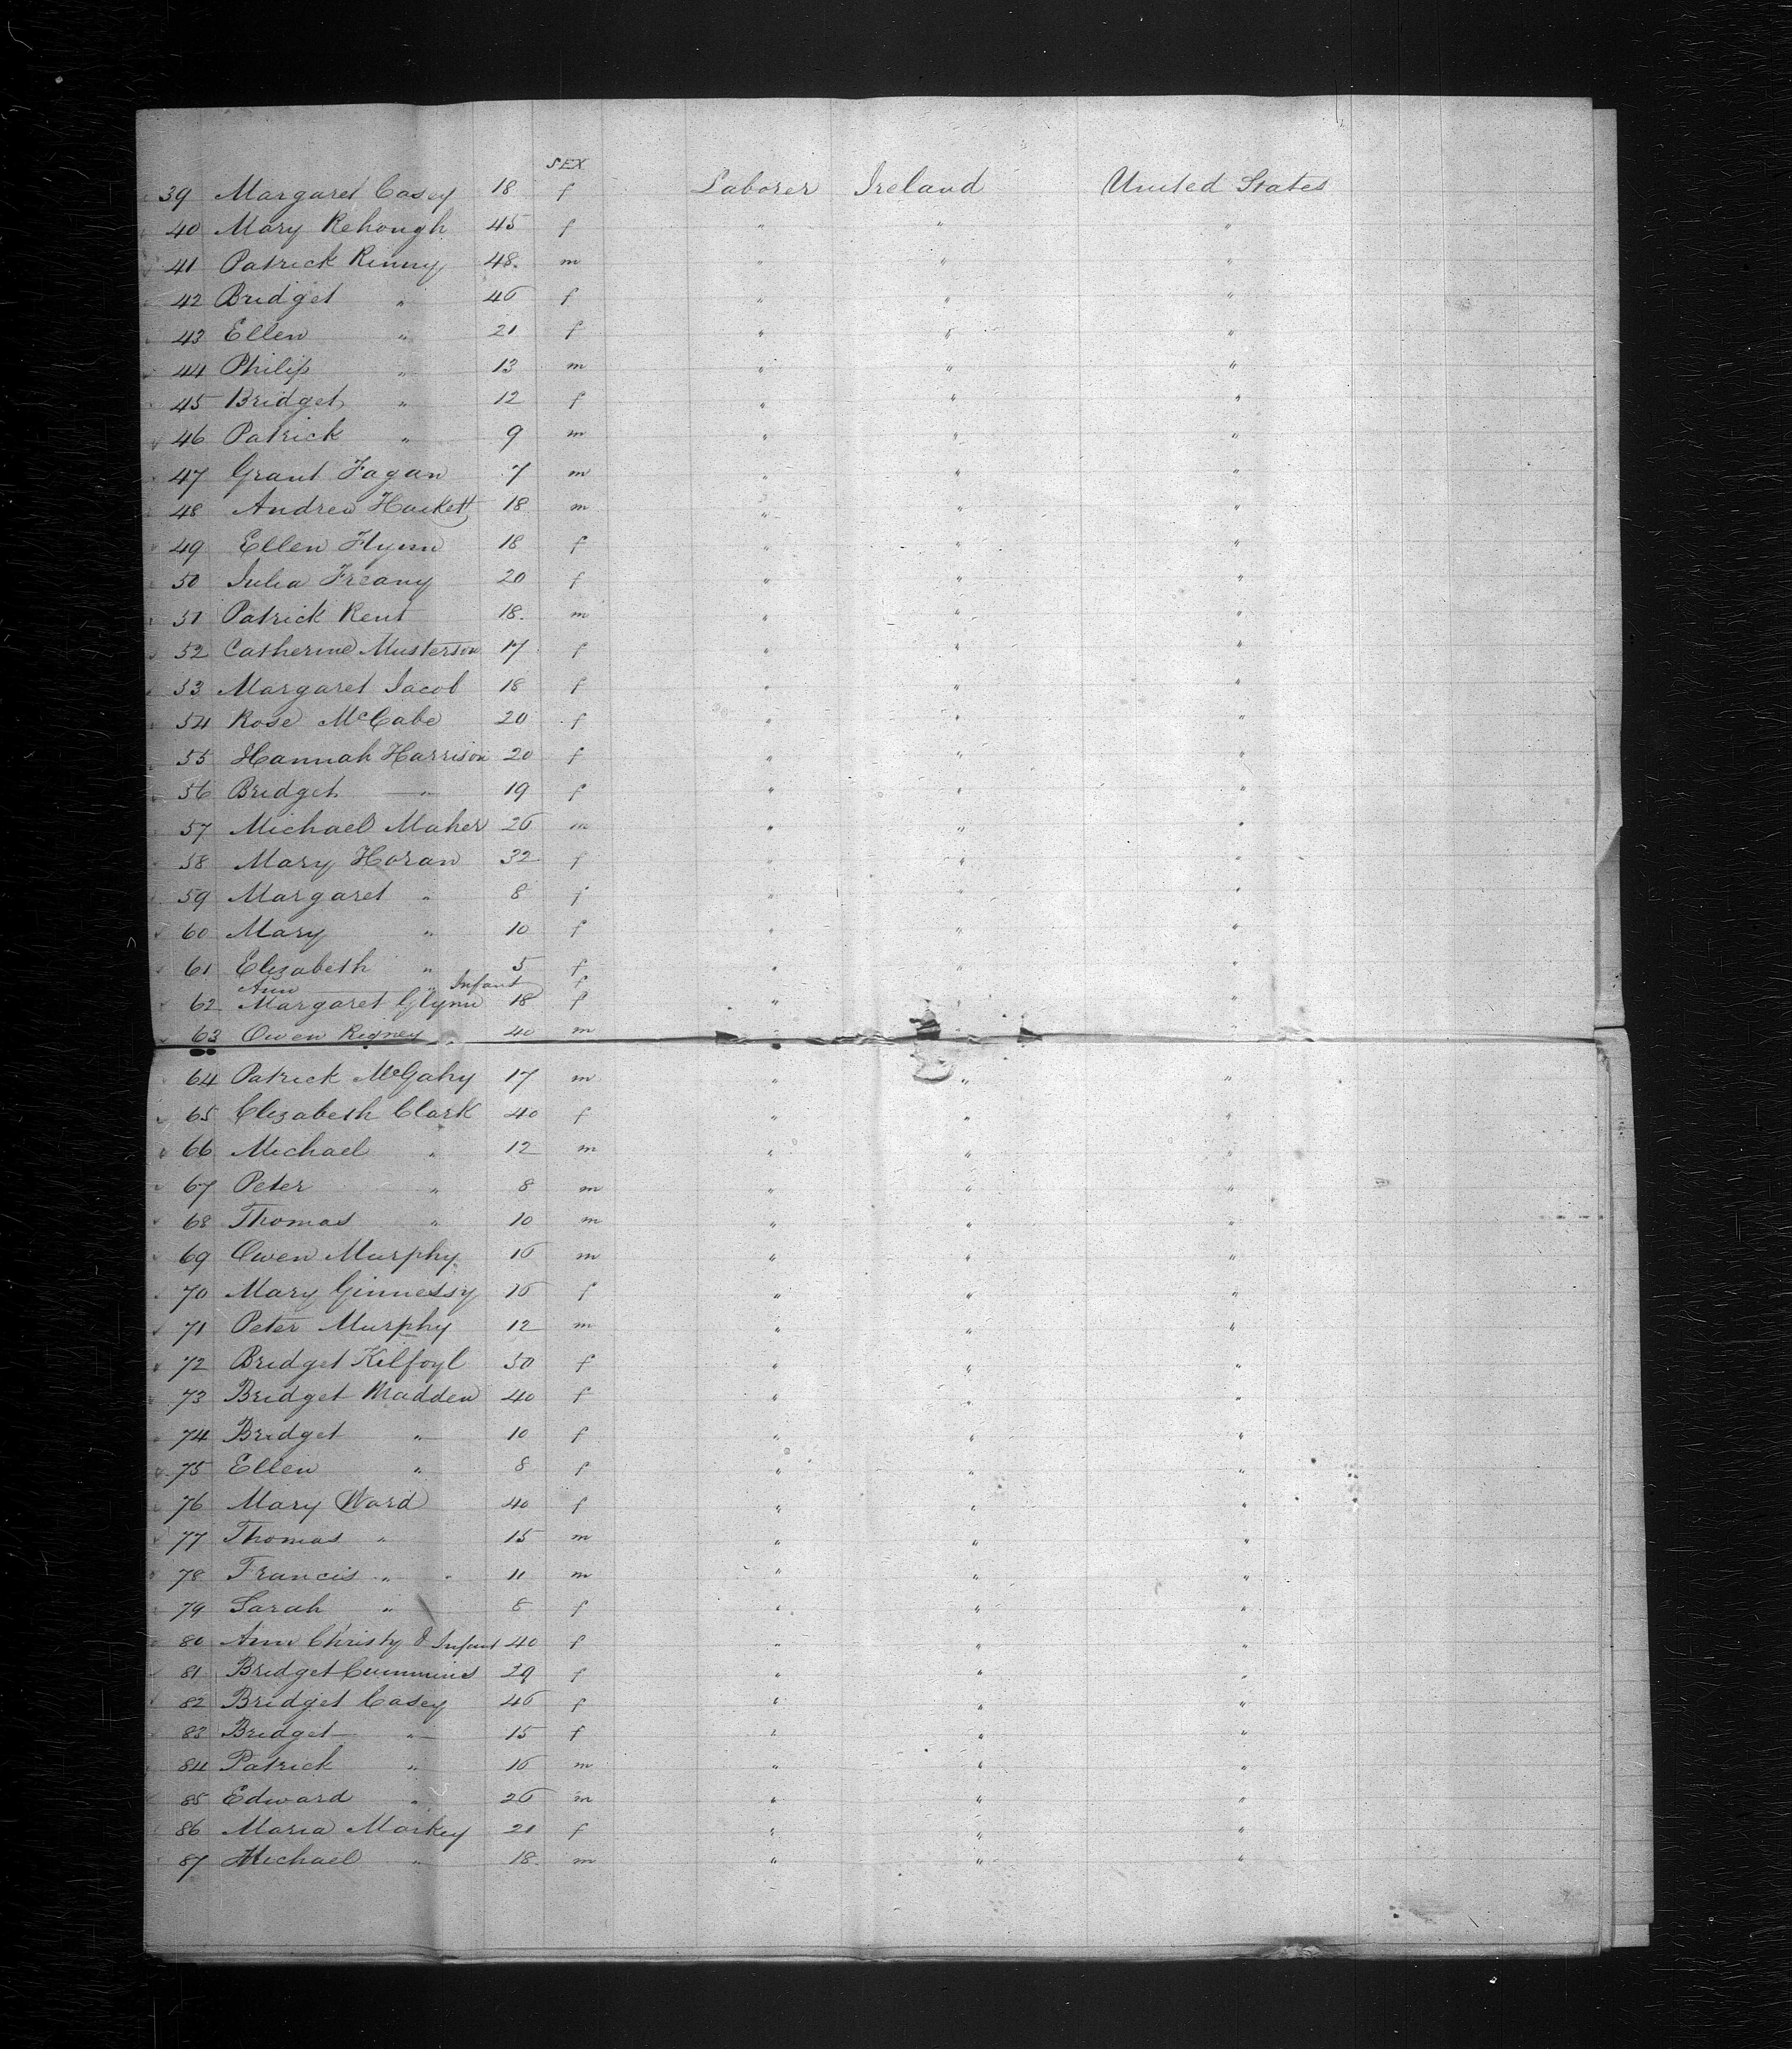 SEX
39 Margaret Casey 18 f Laborer Ireland United States
40 Mary Kehough 45 f " " "
41 Patrick Kinny 48. m " " "
42 Bridget " 46 f " " "
43 Ellen " 21 f " " "
44 Philip " 13 m " " "
45 Bridget " 12 f " " "
46 Patrick " 9 m " " "
47 Grant Fagan 7 m " " "
48 Andrew Hackett 18 m " " "
49 Ellen Flynn 18 f " " "
50 Julia Freany 20 f " " "
51 Patrick Kent 18. m " " "
52 Catherine Musterson 17 f " " "
53 Margaret Jacob 18 f " " "
54 Rose McCabe 20 f " " "
55 Hannah Harrison 20 f " " "
56 Bridget " 19 f " " "
57 Michael Maher 26 m " " "
58 Mary Horan 32 f " " "
59 Margaret " 8 f " " "
60 Mary " 10 f " " "
61 Elizabeth " 5 f " " "
Ann " Infant f
62 Margaret Glynn 18 f " " "
63 Owen Rigney 40 m " " "
64 Patrick McGahy 17 m " " "
65 Elizabeth Clark 40 f " " "
66 Michael " 12 m " " "
67 Peter " 8 m " " "
68 Thomas " 10 m " " "
69 Owen Murphy 16 m " " "
70 Mary Ginnessy 16 f " " "
71 Peter Murphy 12 m " " "
72 Bridget Kilfoyl 50 f " " "
73 Bridget Madden 40 f " " "
74 Bridget " 10 f " " "
75 Ellen " 8 f " " "
76 Mary Ward 40 f " " "
77 Thomas " 15 m " " "
78 Francis " 11 m " " "
79 Sarah " 8 f " " "
80 Ann Christy & Infant 40 f " " "
81 Bridget Cummins 29 f " " "
82 Bridget Casey 46 f " " "
83 Bridget " 15 f " " "
84 Patrick " 16 m " " "
85 Edward " 26 m " " "
86 Maria Markey 21 f " " "
87 Michael " 18. m " " "